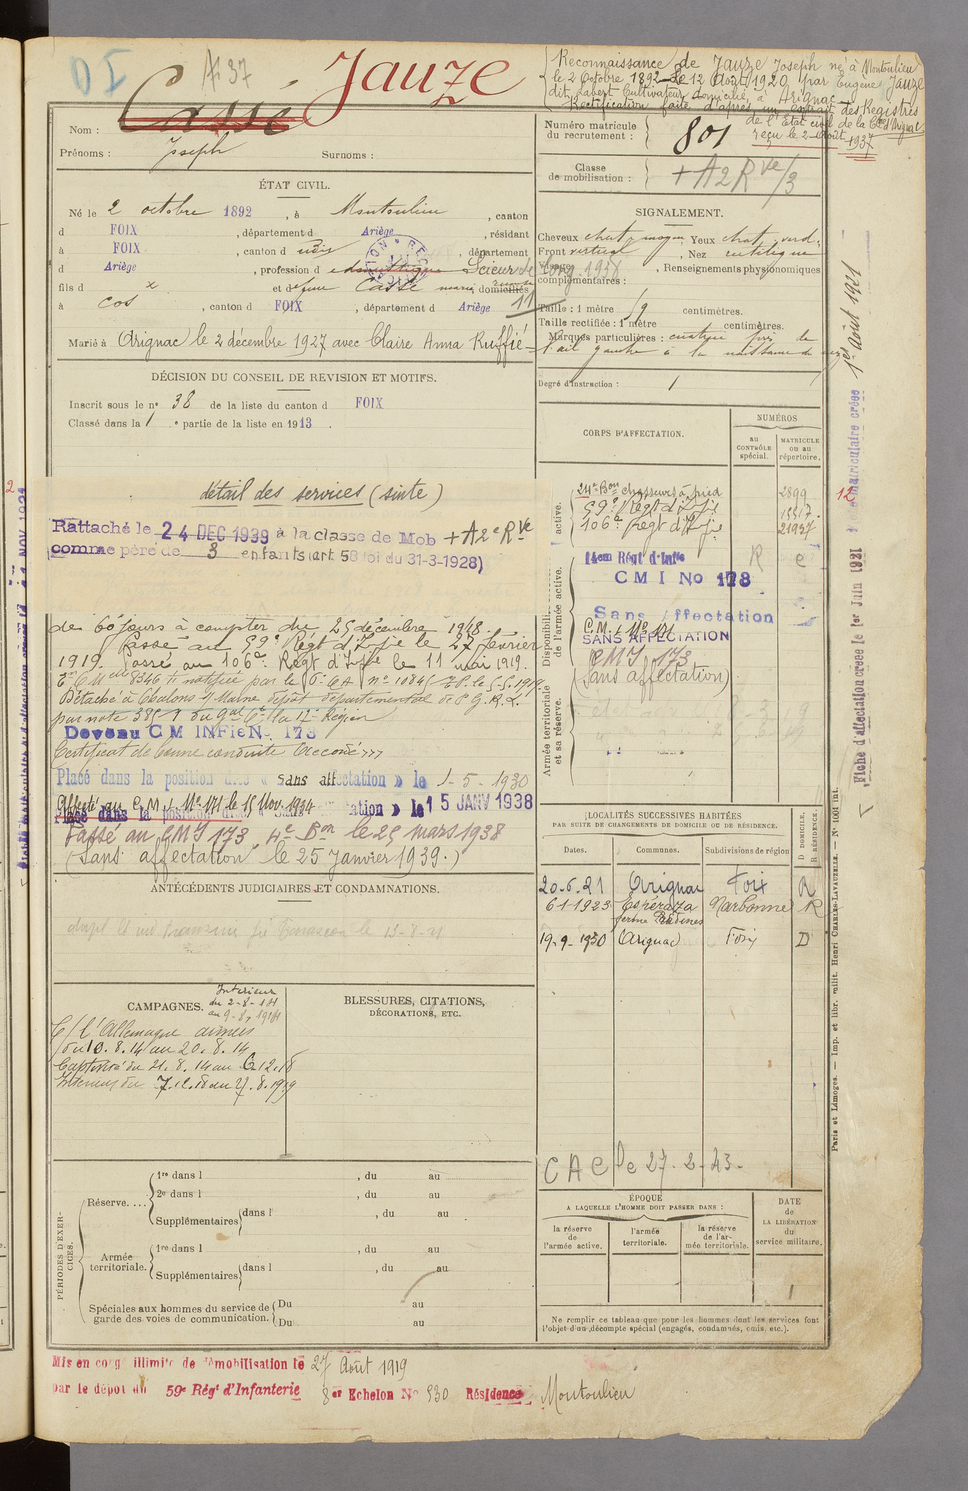 DI
A 37
Cassé
Jauze
Reconnaissance de Jauze Joseph né à Montoulieu
le 2 Octobre 1892 le 12 Août 1920, par Eugène Jauze
dit Labert Cultivateur domicilié à Arignac
Rectification faite d'après un extrait des Registres
de l'Etat civil de la Cne d'Arignac
reçu le 2 Août
1937
Nom :
Prénoms : Joseph Surnoms :
Numéro matricule
du recrutement : 801
Classe
de mobilisation : + A2 Rve/3
ÉTAT CIVIL.
Né le 2 octobre 1892, à Montoulieu, canton
d FOIX, département d Ariège, résidant
à FOIX, canton d udis, département
d Ariège, profession d domestique Scieur de long
fils d x et de feue Cassé marie domiciliés
à Cos, canton d FOIX, département d Ariège 11
Marié à Arignac le 2 décembre 1927 avec Claire Anna Ruffié
SIGNALEMENT.
Cheveux chat. moyen Yeux chat. verd.
Front vertical, Nez rectiligne
1938, Renseignements physionomiques
complémentaires :
Taille : 1 mètre 59 centimètres.
Taille rectifiée : 1 mètre centimètres.
Marques particulières : de
l'œil gauche à la naissance du nez
Degré d'instruction : 1
DÉCISION DU CONSEIL DE REVISION ET MOTIFS.
Inscrit sous le nº 38 de la liste du canton d FOIX
Classé dans la 1e partie de la liste en 1913.
CORPS D'AFFECTATION.
NUMÉROS
au
CONTRÔLE
spécial.
MATRICULE
ou au
répertoire.
active.
24e Bon chasseurs à pied 2899
59e Régt d'Ifie
106e Régt d'Ifie 21937
Disponibilité
de l'armée active.
14em Régt d'Infie R e
CMI No 178
Sans ffectation
C.M.I. Nº 171
SANS AFFECTATION
CMI 173
(Sans affectation)
Armée territoriale
et sa réserve.
détail des services (suite)
Rattaché le 24 DEC 1939 à la classe de Mob + A2e Rve
comme père de 3 enfants (art. 58 loi du 31-3-1928)
de 60 jours à compter du 25 décembre 1918.
Passé au 59e Régt d'Ifie le 27 février
1919. Passé au 106e Régt d'Ifie le 11 mai 1919.
Détaché à Chalons s/Marne dépôt départemental de P.G.R.L.
Devenu CM INFie No 173
Certificat de bonne conduite Accordé
Placé dans la position dite « sans affectation » le 1-5-1930
Affecté au C.M.I. Nº 171 le 15 Nov. 1934
Placé dans la position dite « Sans ctation » le 15 JANV 1938
Passé au CMI 173 4e Bon le 25 mars 1938
(Sans affectation le 25 Janvier 1939.)
LOCALITÉS SUCCESSIVES HABITÉES
PAR SUITE DE CHANGEMENTS DE DOMICILE OU DE RÉSIDENCE.
Dates. Communes. Subdivisions de région
D DOMICILE,
R RÉSIDENCE.
20-6.21 Arignac Foix R
6-1-1923 Espéraza Narbonne R
19-9-1930 Arignac Foix D
CAC le 27.2.43.
ANTÉCÉDENTS JUDICIAIRES ET CONDAMNATIONS.
CAMPAGNES.
Intérieur
du 2-8-1914
au 9-8-1914
C/ l'Allemagne armées
du 10.8.14 au 20.8.14
Captivité du 21.8.14 au 6.12.18
Intérieur du 7.12.18 au 27.8.1919
BLESSURES, CITATIONS,
DÉCORATIONS, ETC.
PÉRIODES D'EXERCICES.
Réserve....
1re dans l , du au
2e dans l , du au
Supplémentaires dans l , du au
Armée
territoriale.
1re dans l , du au
Supplémentaires dans l , du au
Spéciales aux hommes du service de
garde des voies de communication.
Du au
Du au
ÉPOQUE
A LAQUELLE L'HOMME DOIT PASSER DANS :
la réserve
de
l'armée active.
l'armée
territoriale.
la réserve
de l'armée territoriale.
DATE
de
LA LIBÉRATION
du
service militaire.
Ne remplir ce tableau que pour les hommes dont les services font
l'objet d'un décompte spécial (engagés, condamnés, omis, etc.).
Mis en cong illimité de démobilisation le 27 Août 1919
par le dépôt du 59e Régt d'Infanterie 8er Echelon No 530 Résidence Montoulieu
12
matriculaire créée 1er Août 1921
Fiche d'affectation créée le 1er Juin 1921
Paris et Limoges. — Imp. et libr. milit. Henri CHARLES-LAVAUZELLE. — Nº 1001 int.